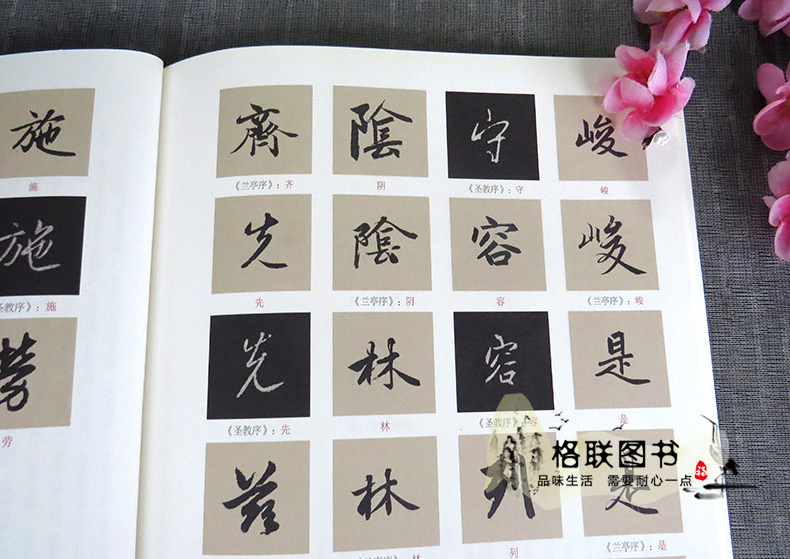 施
施
齊
陰
守
峻
《兰亭序》：齐
阴
《圣教序》：守
峻
施
圣教序》：施
先
陰
容
峻
先
《兰亭序》：阴
容
《兰亭序》：峻
劳
先
林
容
是
《圣教序》：先
林
《圣教序》：容
是
林
列
是
林
列
《兰亭序》：是
格联图书
品味生活 需要耐心一点